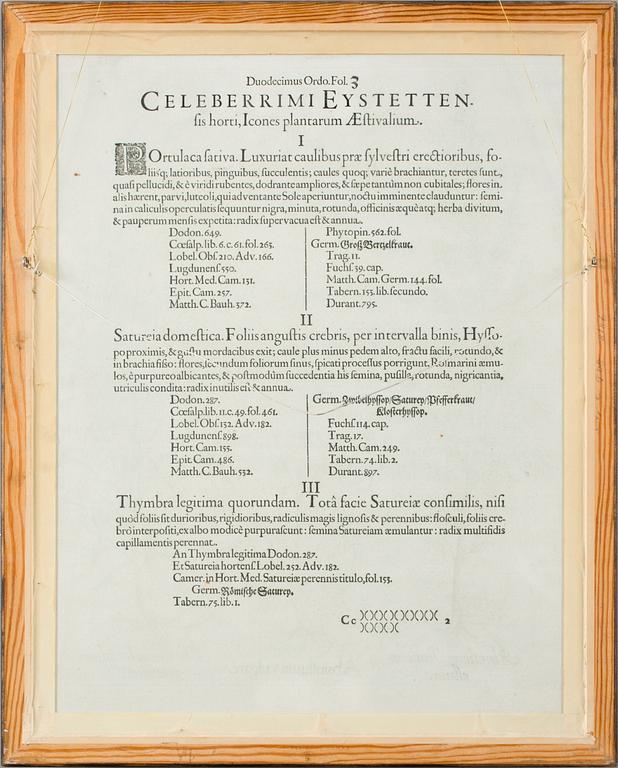 Duodecimus Ordo. Fol. 3
CELEBERRIMI EYSTETTEN-
sis horti, Icones plantarum Æstivalium.
I
POrtulaca sativa. Luxuriat caulibus præ sylvestri erectioribus, fo-
liisq; latioribus, pinguibus, succulentis; caules quoq; variè brachiantur, teretes sunt,
quasi pellucidi, & è viridi rubentes, dodrante ampliores, & sæpe tantùm non cubitales; flores in
alis hærent, parvi, luteoli, qui adventante Sole aperiuntur, noctu imminente clauduntur: semi-
na in caliculis operculatis sequuntur nigra, minuta, rotunda, officinis æquè atq; herba divitum,
& pauperum mensis expetita: radix supervacua est & annua.
Dodon. 649.
Cæsalp. lib. 6. c. 61. fol. 263.
Lobel. Obs. 210. Adv. 166.
Lugdunens. 550.
Hort. Med. Cam. 131.
Epit. Cam. 257.
Matth. C. Bauh. 372.
Phytopin. 562. fol.
Germ. Groß Bertzelkraut.
Trag. 11.
Fuchs. 39. cap.
Matth. Cam. Germ. 144. fol.
Tabern. 153. lib. secundo.
Durant. 795.
II
Satureia domestica. Foliis angustis crebris, per intervalla binis, Hysso-
po proximis, & gustu mordacibus exit; caule plus minus pedem alto, fractu facili, rotundo, &
in brachia fisso: flores, secundum foliorum sinus, spicati processus porrigunt, Rosmarini æmu-
los, è purpureo albicantes, & postmodùm succedentia his semina, pusilla, rotunda, nigricantia,
utriculis condita: radix inutilis est & annua.
Dodon. 287.
Cæsalp. lib. 11. c. 49. fol. 461.
Lobel. Obs. 152. Adv. 182.
Lugdunens. 898.
Hort. Cam. 155.
Epit. Cam. 486.
Matth. C. Bauh. 532.
Germ. Zwibelhyssop/Saturey/Pfefferkraut/
Klosterhyssop.
Fuchs. 114. cap.
Trag. 17.
Matth. Cam. 249.
Tabern. 74. lib. 2.
Durant. 897.
III
Thymbra legitima quorundam. Totâ facie Satureiæ consimilis, nisi
quòd foliis sit durioribus, rigidioribus, radiculis magis lignosis & perennibus: flosculi, foliis cre-
brò interpositi, ex albo modicè purpurascunt: semina Satureiam æmulantur: radix multifidis
capillamentis perennat.
An Thymbra legitima Dodon. 287.
Et Satureia hortens. Lobel. 252. Adv. 182.
Camer. in Hort. Med. Satureiæ perennis titulo, fol. 153.
Germ. Römische Saturey.
Tabern. 75. lib. 1.
Cc )()()()()()()()( 2
)()()()(